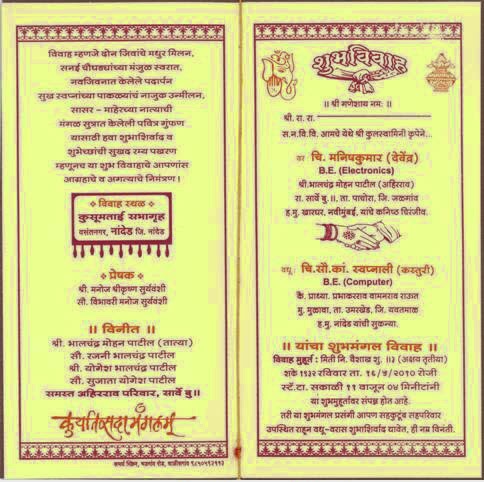 विवाह म्हणजे दोन जिवांचे मधुर मिलन,
सनई चौघड्यांच्या मंजुळ स्वरात,
नवजिवनात केलेले पदार्पन
सुख स्वप्नांच्या पाकळ्यांचं नाजुक उन्मीलन,
सासर - माहेरच्या नात्याची
मंगळ सुत्रात केलेली पवित्र गुंफण
यासाठी हवा शुभाशिर्वाद व
शुभेच्छांची सुखद रम्य पखरण
म्हणूनच या शुभ विवाहाचे आपणांस
आग्रहाचे व अगत्याचे निमंत्रण !
❖ विवाह स्थळ ❖
कुसूमताई सभागृह
वसंतनगर, नांदेड जि. नांदेड
❖ प्रेषक ❖
श्री. मनोज श्रीकृष्ण सुर्यवंशी
सौ. विभावरी मनोज सुर्यवंशी
॥ विनीत ॥
श्री. भालचंद्र मोहन पाटील (तात्या)
सौ. रजनी भालचंद्र पाटील
श्री. योगेश भालचंद्र पाटील
सौ. सुजाता योगेश पाटील
समस्त अहिरराव परिवार, सार्वे बु॥
कुर्यात सदा मंगलम्
शुभविवाह
॥ श्री गणेशाय नमः ॥
श्री. रा. रा.
स.न.वि.वि. आमचे येथे श्री कुलस्वामिनी कृपेने...
वर चि. मनिषकुमार (देवेंद्र)
B.E. (Electronics)
श्री.भालचंद्र मोहन पाटील (अहिरराव)
रा. सार्वे बु.॥, ता. पाचोरा, जि. जळगांव
ह.मु. खारघर, नवीमुंबई, यांचे कनिष्ठ चिरंजीव.
वधू : चि.सौ.कां. स्वप्नाली (कस्तुरी)
B.E. (Computer)
कै. प्राध्या. प्रभाकरराव वामनराव राऊत
मु. मुळावा, ता. उमरखेड, जि. यवतमाळ
ह.मु. नांदेड यांची सुकन्या.
॥ यांचा शुभमंगल विवाह ॥
विवाह मुहूर्त : मिती नि. वैशाख शु. ॥३ (अक्षय तृतीया)
शके १९३२ रविवार ता. १६/५/२०१० रोजी
स्टॅ.टा. सकाळी ११ वाजून ०५ मिनीटांनी
या शुभमुहूर्तावर संपन्न होत आहे.
तरी या शुभमंगल प्रसंगी आपण सहकुटूंब सहपरिवार
उपस्थित राहून वधू-वरास शुभाशिर्वाद द्यावेत, ही नम्र विनंती.